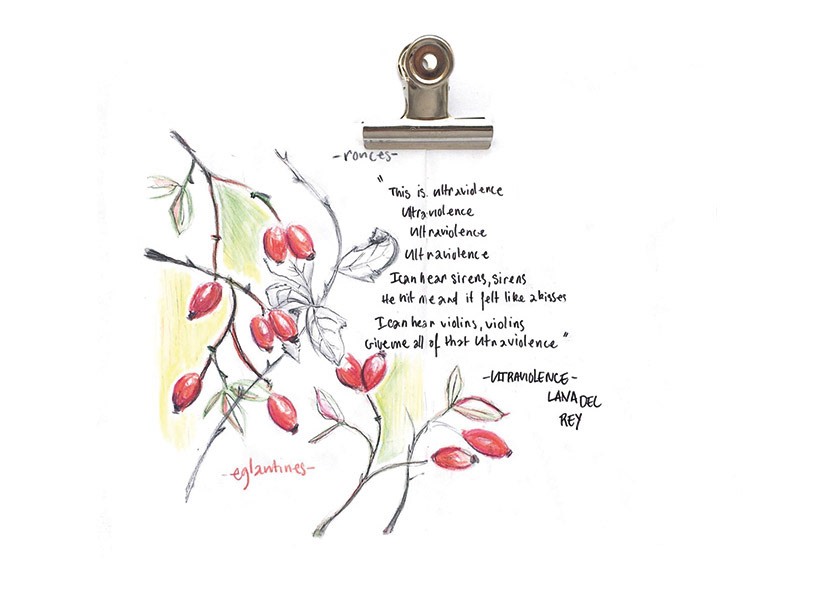 -ronces-
"This is ultraviolence
Ultraviolence
Ultraviolence
Ultraviolence
I can hear sirens, sirens
He hit me and it felt like a kisses
I can hear violins, violins
Give me all of that Utraviolence"
-ULTRAVIOLENCE-
LANA DEL
REY
-eglantines-